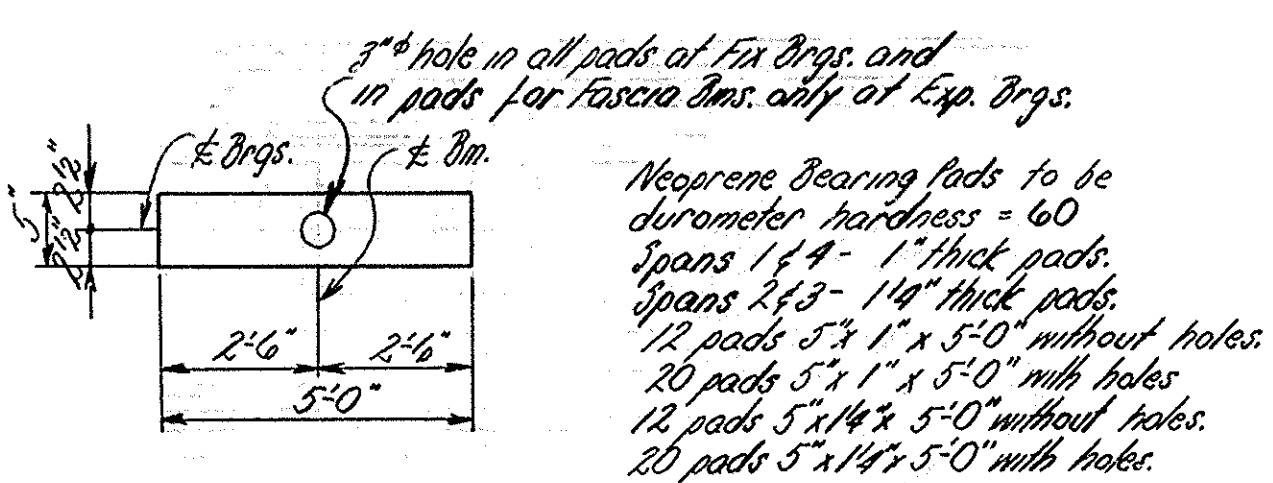 3"ϕ hole in all pads at Fix Brgs. and
in pads for Fascia Bms. only at Exp. Brgs.
℄ Brgs.
℄ Bm.
2½"
5"
2½"
2'-6"
2'-6"
5'-0"
Neoprene Bearing Pads to be
durometer hardness = 60
Spans 1 & 4 - 1" thick pads.
Spans 2 & 3 - 1¼" thick pads.
12 pads 5" x 1" x 5'-0" without holes.
20 pads 5" x 1" x 5'-0" with holes
12 pads 5" x 1¼" x 5'-0" without holes.
20 pads 5" x 1¼" x 5'-0" with holes.